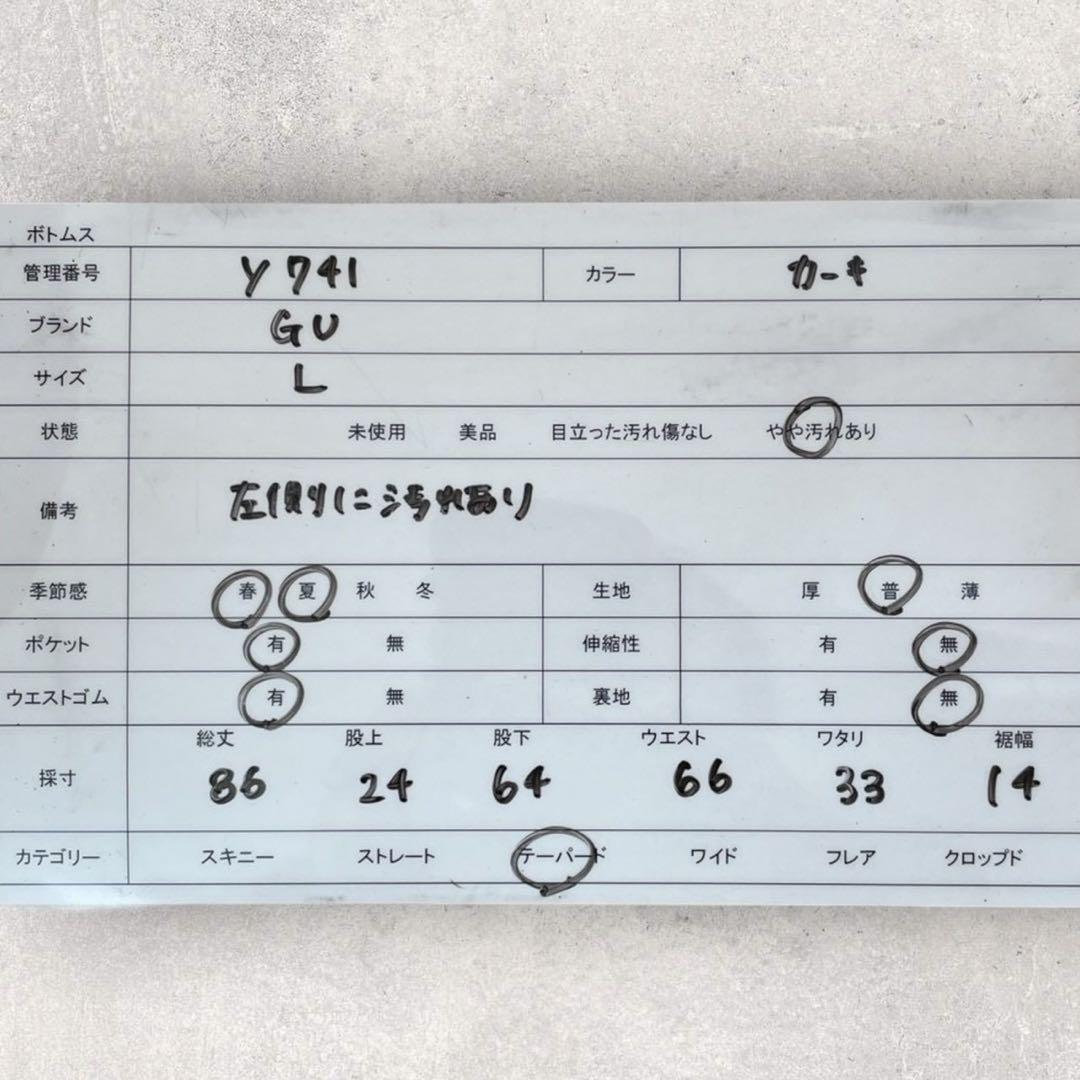 ボトムス
管理番号 Y741 カラー カーキ
ブランド GU
サイズ L
状態 未使用 美品 目立った汚れ傷なし やや汚れあり
備考 左側に汚れあり
季節感 春 夏 秋 冬 生地 厚 普 薄
ポケット 有 無 伸縮性 有 無
ウエストゴム 有 無 裏地 有 無
総丈 股上 股下 ウエスト ワタリ 裾幅
採寸 86 24 64 66 33 14
カテゴリー スキニー ストレート テーパード ワイド フレア クロップド